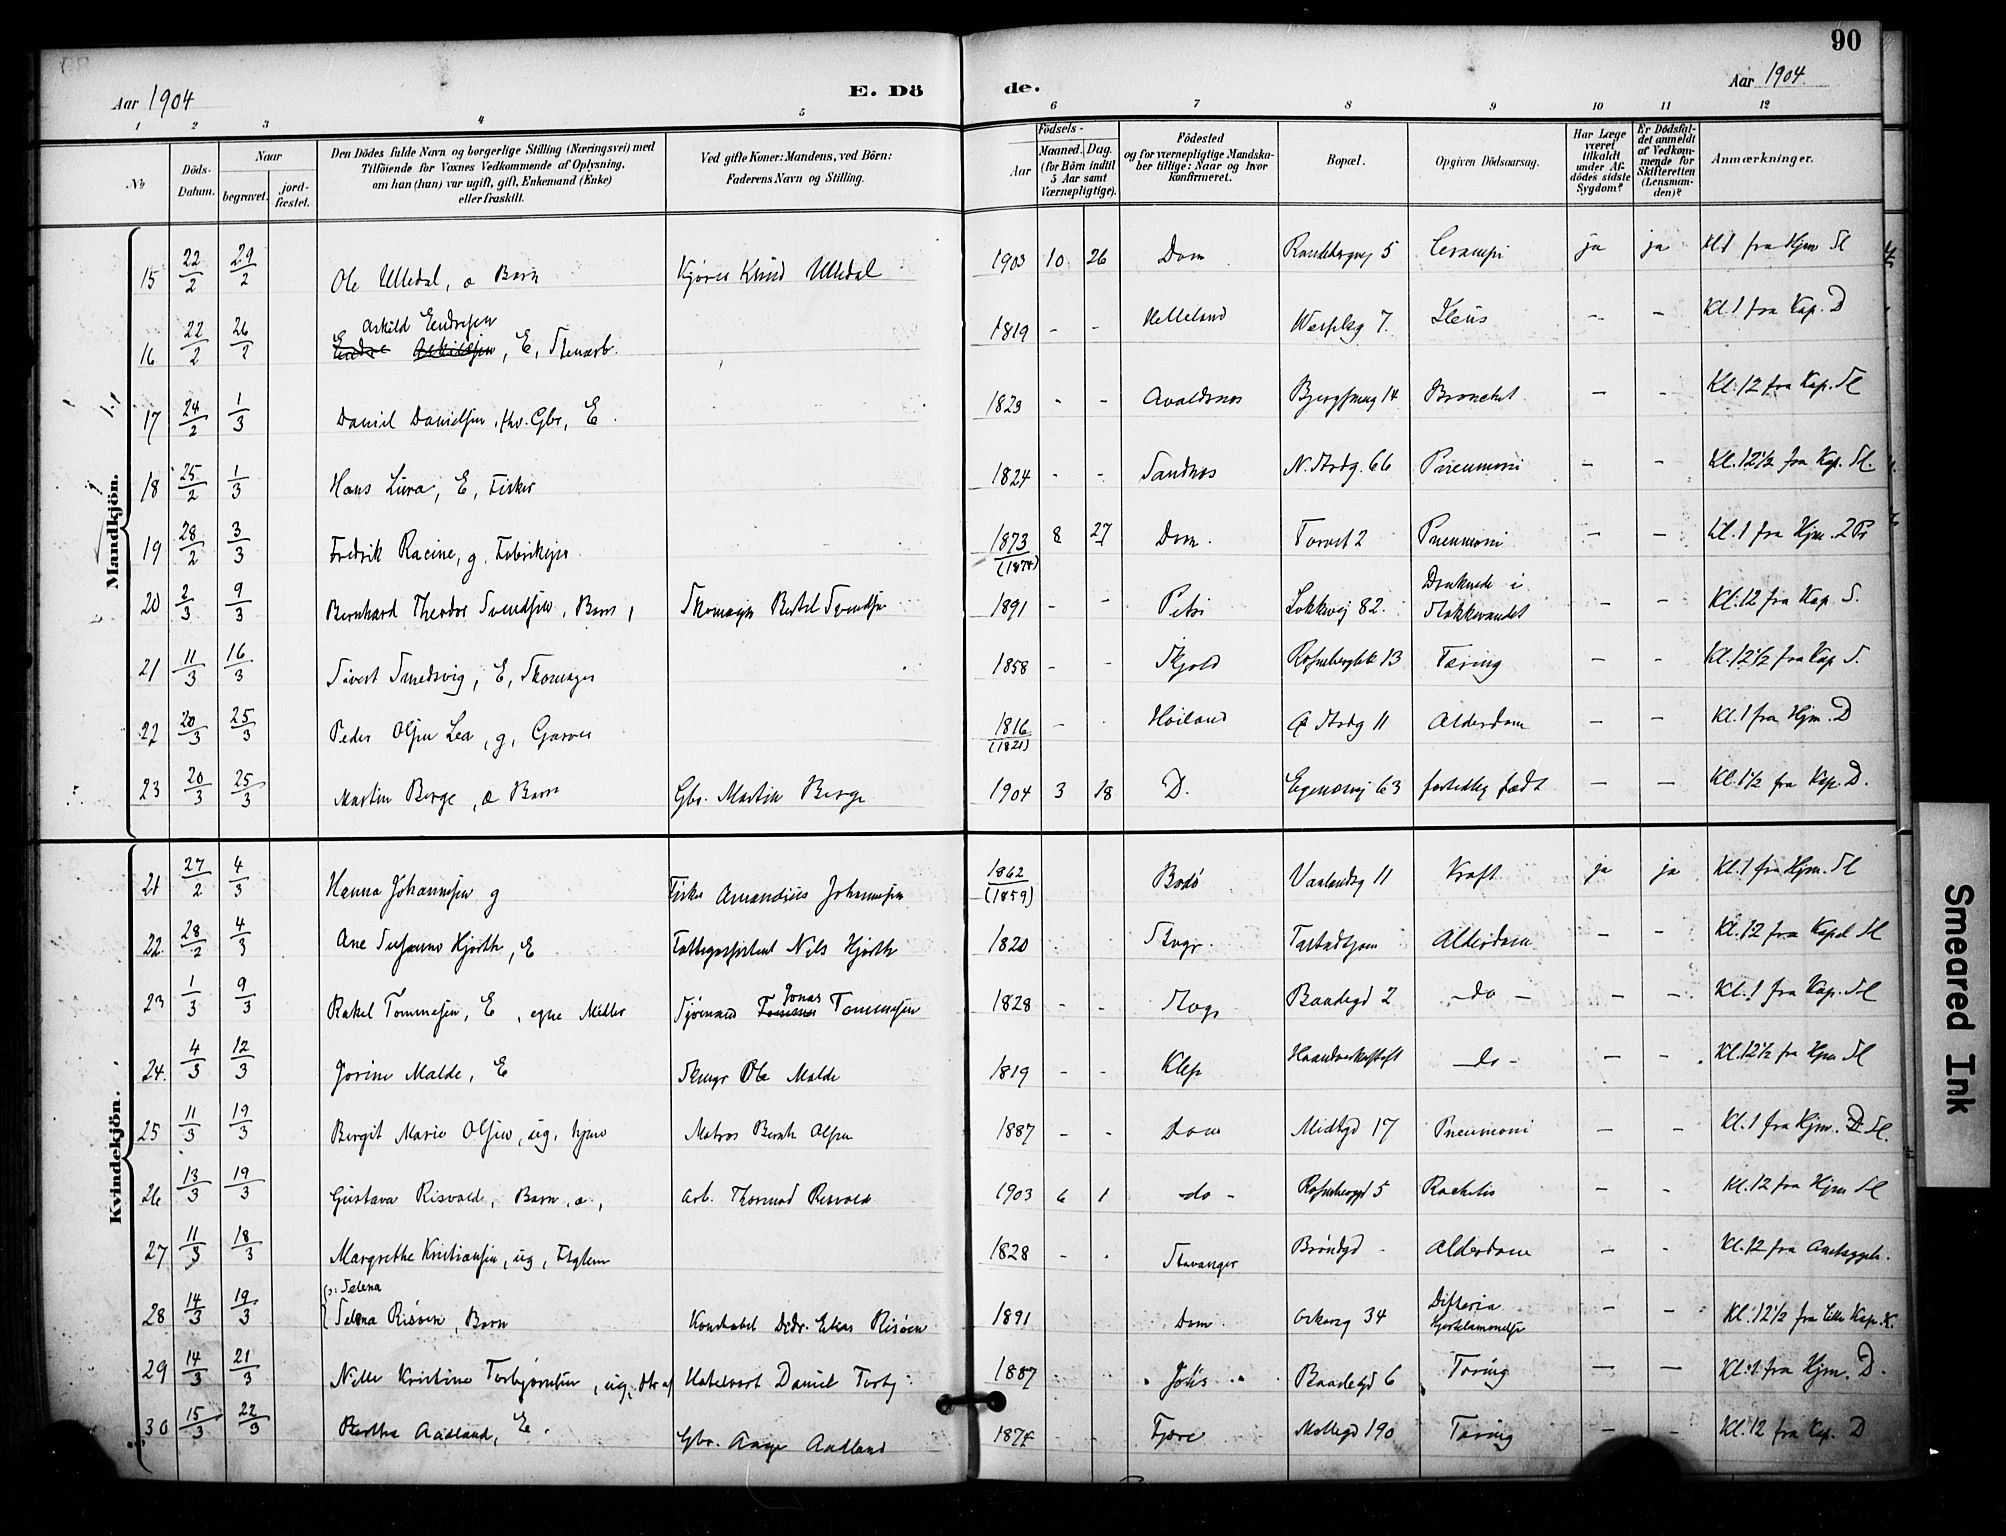 90
Aar 1904
E. Dö
de.
Aar 1904
1 2 3 4 5 6 7 8 9 10 11 12
No
Döds-Datum.
Naar
begravet.
jord-fæstet.
Den Dödes fulde Navn og borgerlige Stilling (Næringsvei) med
Tilföiende for Voxnes Vedkommende af Oplysning,
om han (hun) var ugift, gift, Enkemand (Enke)
eller fraskilt.
Ved gifte Koner: Mandens, ved Börn:
Faderens Navn og Stilling.
Födsels-
Aar
Maaned. Dag.
(for Börn indtil
5 Aar samt
Værnepligtige).
Födested
og for værnepligtige Mandska-
ber tillige: Naar og hvor
konfirmeret.
Bopæl.
Opgiven Dödsaarsag.
Har Læge
været
tilkaldt
under Af-
dödes sidste
Sygdom?
Er Dödsfal-
det anmeldt
af Vedkom-
mende for
Skifteretten
(Lensman-
den)?
Anmærkninger.
Mandkjön.
15 22/2 29/2 Ole Ulledal, æ Barn Kjører Knud Ulledal 1903 10 26 Dom 5 ja ja fra Hjm Sl
Askild Endresen
16 22/2 26/2 Endre Askildsen, E, Stenarb. 1819 - - Helleland 7. Ileus - - Kl. 1 fra Kap. D
17 24/2 1/3 Daniel Danielsen, fhv. Gbr, E. 1823 - - Avaldsnes 14 Bronchit - - Kl. 12 fra Kap. Sl
18 25/2 1/3 Hans Lura, E, Fisker 1824 - - Sandnes N. Strdg. 66 Pneumoni - - Kl. 12 1/2 fra Kap. Sl.
19 28/2 3/3 Fredrik Racine, g. 1873 (1874) 8 27 Dom. Torvet 2 Pneumoni - - Kl. 1 fra Hjm.
20 2/3 9/3 Bernhard Theodor Svendsen, Barn, Skomager Bertel Svendsen 1891 - - Petri Lokkevej 82. Druknede i
Stokkevandet - - Kl. 12 fra Kap. S.
21 11/3 16/3 Sivert Smedsvig, E, Skomager 1858 - - Skjold 13 Tæring - - Kl. 12 1/2 fra Kap S.
22 20/3 25/3 Peder Olsen Lea, g, Garver 1816 (1821) - . Høiland Strdg 11 Alderdom - - Kl. 1 fra Hjm. D
23 20/3 25/3 Martin Berge, æ Barn Gbr. Martin Berge 1904 3 18 D. 63 fortidlig født - - Kl. 1 1/2 fra Kap. D.
Kvindekjön.
21 27/2 4/3 Hanna Johannesen g Fisker Amandius Johannesen 1862 (1859) Bodø Vaalandsg 11 Kræft ja ja Kl. 1 fra Hjm. Sl
22. 28/2 4/3 Ane Susanne Hjorth, E Nils Hjorth 1820 Stvgr. Alderdom - - Kl. 12 fra Kapel Sl
Jonas
23 1/3 9/3 Rakel Tommesen, E, egne Midler Sjømand Tommes Tommesen 1828 - - Baadegd 2 - do - - - Kl. 1 fra Kap. Sl
24. 4/3 12/3 Jorine Malde, E Ole Malde 1819 - - Klep - do - - - Kl. 12 1/2 fra Hjm Sl
25 11/3 19/3 Bergit Marie Olsen, ug. hjme Matros Bernh Olsen 1887 - - Dom Midtgd 17 Pneumoni - - Kl. 1 fra Hjm. D Sl.
26 13/3 19/3 Gustava Risvold, Barn, æ, Arb. Thormod Risvold 1903 6 1 - do - 5 Rachitis - - Kl. 12 fra Hjm Sl
27 11/3 18/3 Margrethe Kristiansen, ug, 1828 - . Stavanger Brøndgd - Alderdom - - Kl. 12 fra
(ɔ: Selena
28 14/3 19/3 Selena Risøen, Barn Konstabel Elias Risøen 1891 Dom 34 Difteria
Hjertelammelse - - Kl. 12 1/2 fra lille Kap. K.
29 14/3 21/3 Kristine Torbjørnsen, ug, Daniel Torbj 1887 Baadegd 6 Tæring - - Kl. 1 fra Hjm. D.
30 15/3 22/3 Berthe Aadland, E. Gbr. Aage Aadland 1874 - - Møllegd 190 Tæring - - Kl. 12 fra Kap. D
Smeared Ink